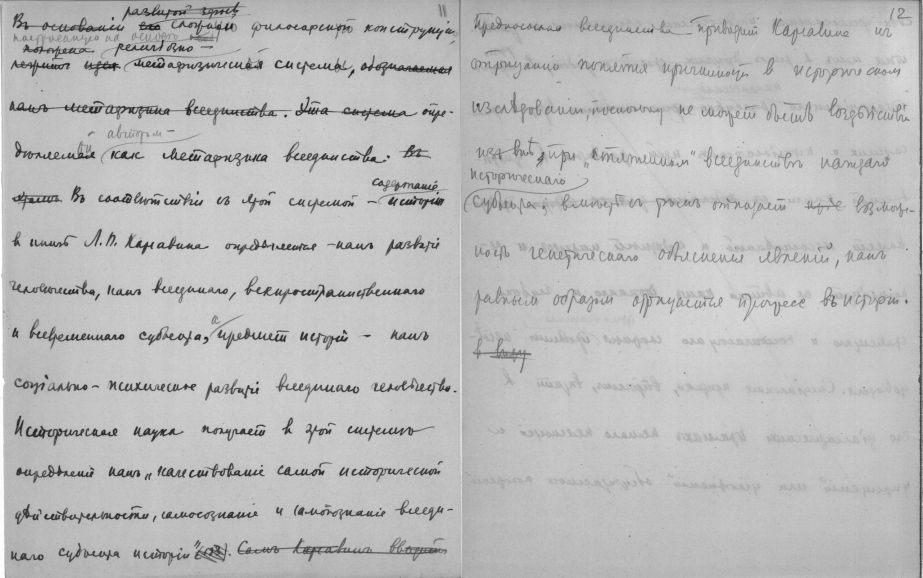 11
развитой здѣсь
Въ основаніи сложную философскую конструкцію
построенную на основѣ
положена религіозно-
метафизическая система, обозначаемая
какъ метафизика всеединства. Эта система опре-
авторомъ
дѣляемая какъ метафизика всеединства. Въ
Въ соотвѣтствіи съ этой системой – исторія
содержаніе
в книгѣ Л.П. Карсавина опредѣляется – какъ развитіе
человѣчества, какъ всеединаго, всепространственнаго
и всевременнаго субъекта, а предметъ исторіи – какъ
соціально-психическое развитіе всеединаго человѣчества.
Историческая наука получаетъ в этой системѣ
опредѣленіе какъ „качествованіе самой исторической
дѣйствительности, самосознаніе и самопознаніе всееди-
наго субъекта исторіи“. Самъ Карсавинъ вводитъ
12
Предпосылка всеединства приводит Карсавина къ
отрицанію понятія причинности в историческом
изслѣдованіи, поскольку не может быть воздѣйствія
извнѣ при „стяженном“ всеединствѣ каждаго
историческаго
субъекта; вмѣстѣ съ тѣмъ отпадает возмож-
ность генетическаго объясненія явленій, какъ
равным образом отрицается прогресс въ исторіи.
в виду